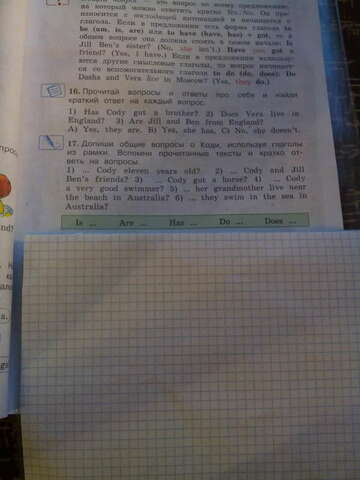 общий вопрос — это вопрос ко всему предложению,
на который можно ответить кратко Yes./No. Он про-
износится с восходящей интонацией и начинается с
глагола. Если в предложении есть форма глагола to
be (am, is, are) или to have (have, has) + got, то в
общем вопросе она должна стоять в самом начале: Is
Jill Ben's sister? (No, she isn't.) Have you got a
friend? (Yes, I have.) Если в предложении использу-
ются другие смысловые глаголы, то вопрос начинает-
ся со вспомогательного глагола to do (do, does): Do
Dasha and Vera live in Moscow? (Yes, they do.)
16. Прочитай вопросы и ответы про себя и найди
краткий ответ на каждый вопрос.
1) Has Cody got a brother? 2) Does Vera live in
England? 3) Are Jill and Ben from England?
A) Yes, they are. B) Yes, she has. C) No, she doesn't.
17. Допиши общие вопросы о Коди, используя глаголы
из рамки. Вспомни прочитанные тексты и кратко от-
веть на вопросы.
1) ... Cody eleven years old? 2) ... Cody and Jill
Ben's friends? 3) ... Cody got a horse? 4) ... Cody
a very good swimmer? 5) ... her grandmother live near
the beach in Australia? 6) ... they swim in the sea in
Australia?
Is ... Are ... Has ... Do ... Does ...